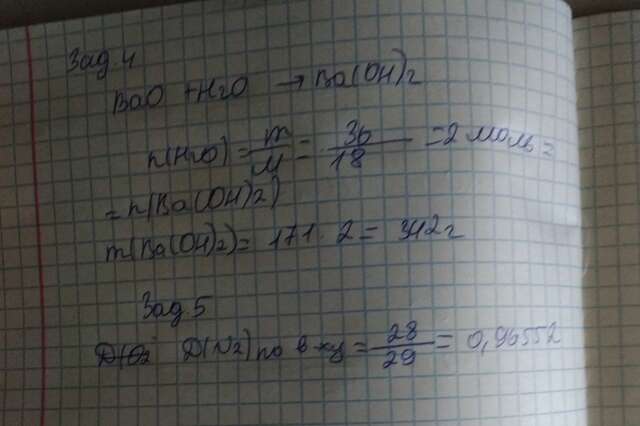 Зад. 4
BaO + H2O → Ba(OH)2
n(H2O) = m/M = 36/18 = 2 моль =
= n(Ba(OH)2)
m(Ba(OH)2) = 171 · 2 = 342 г
Зад. 5
D(O2 D(N2) по в-ху = 28/29 = 0,96552